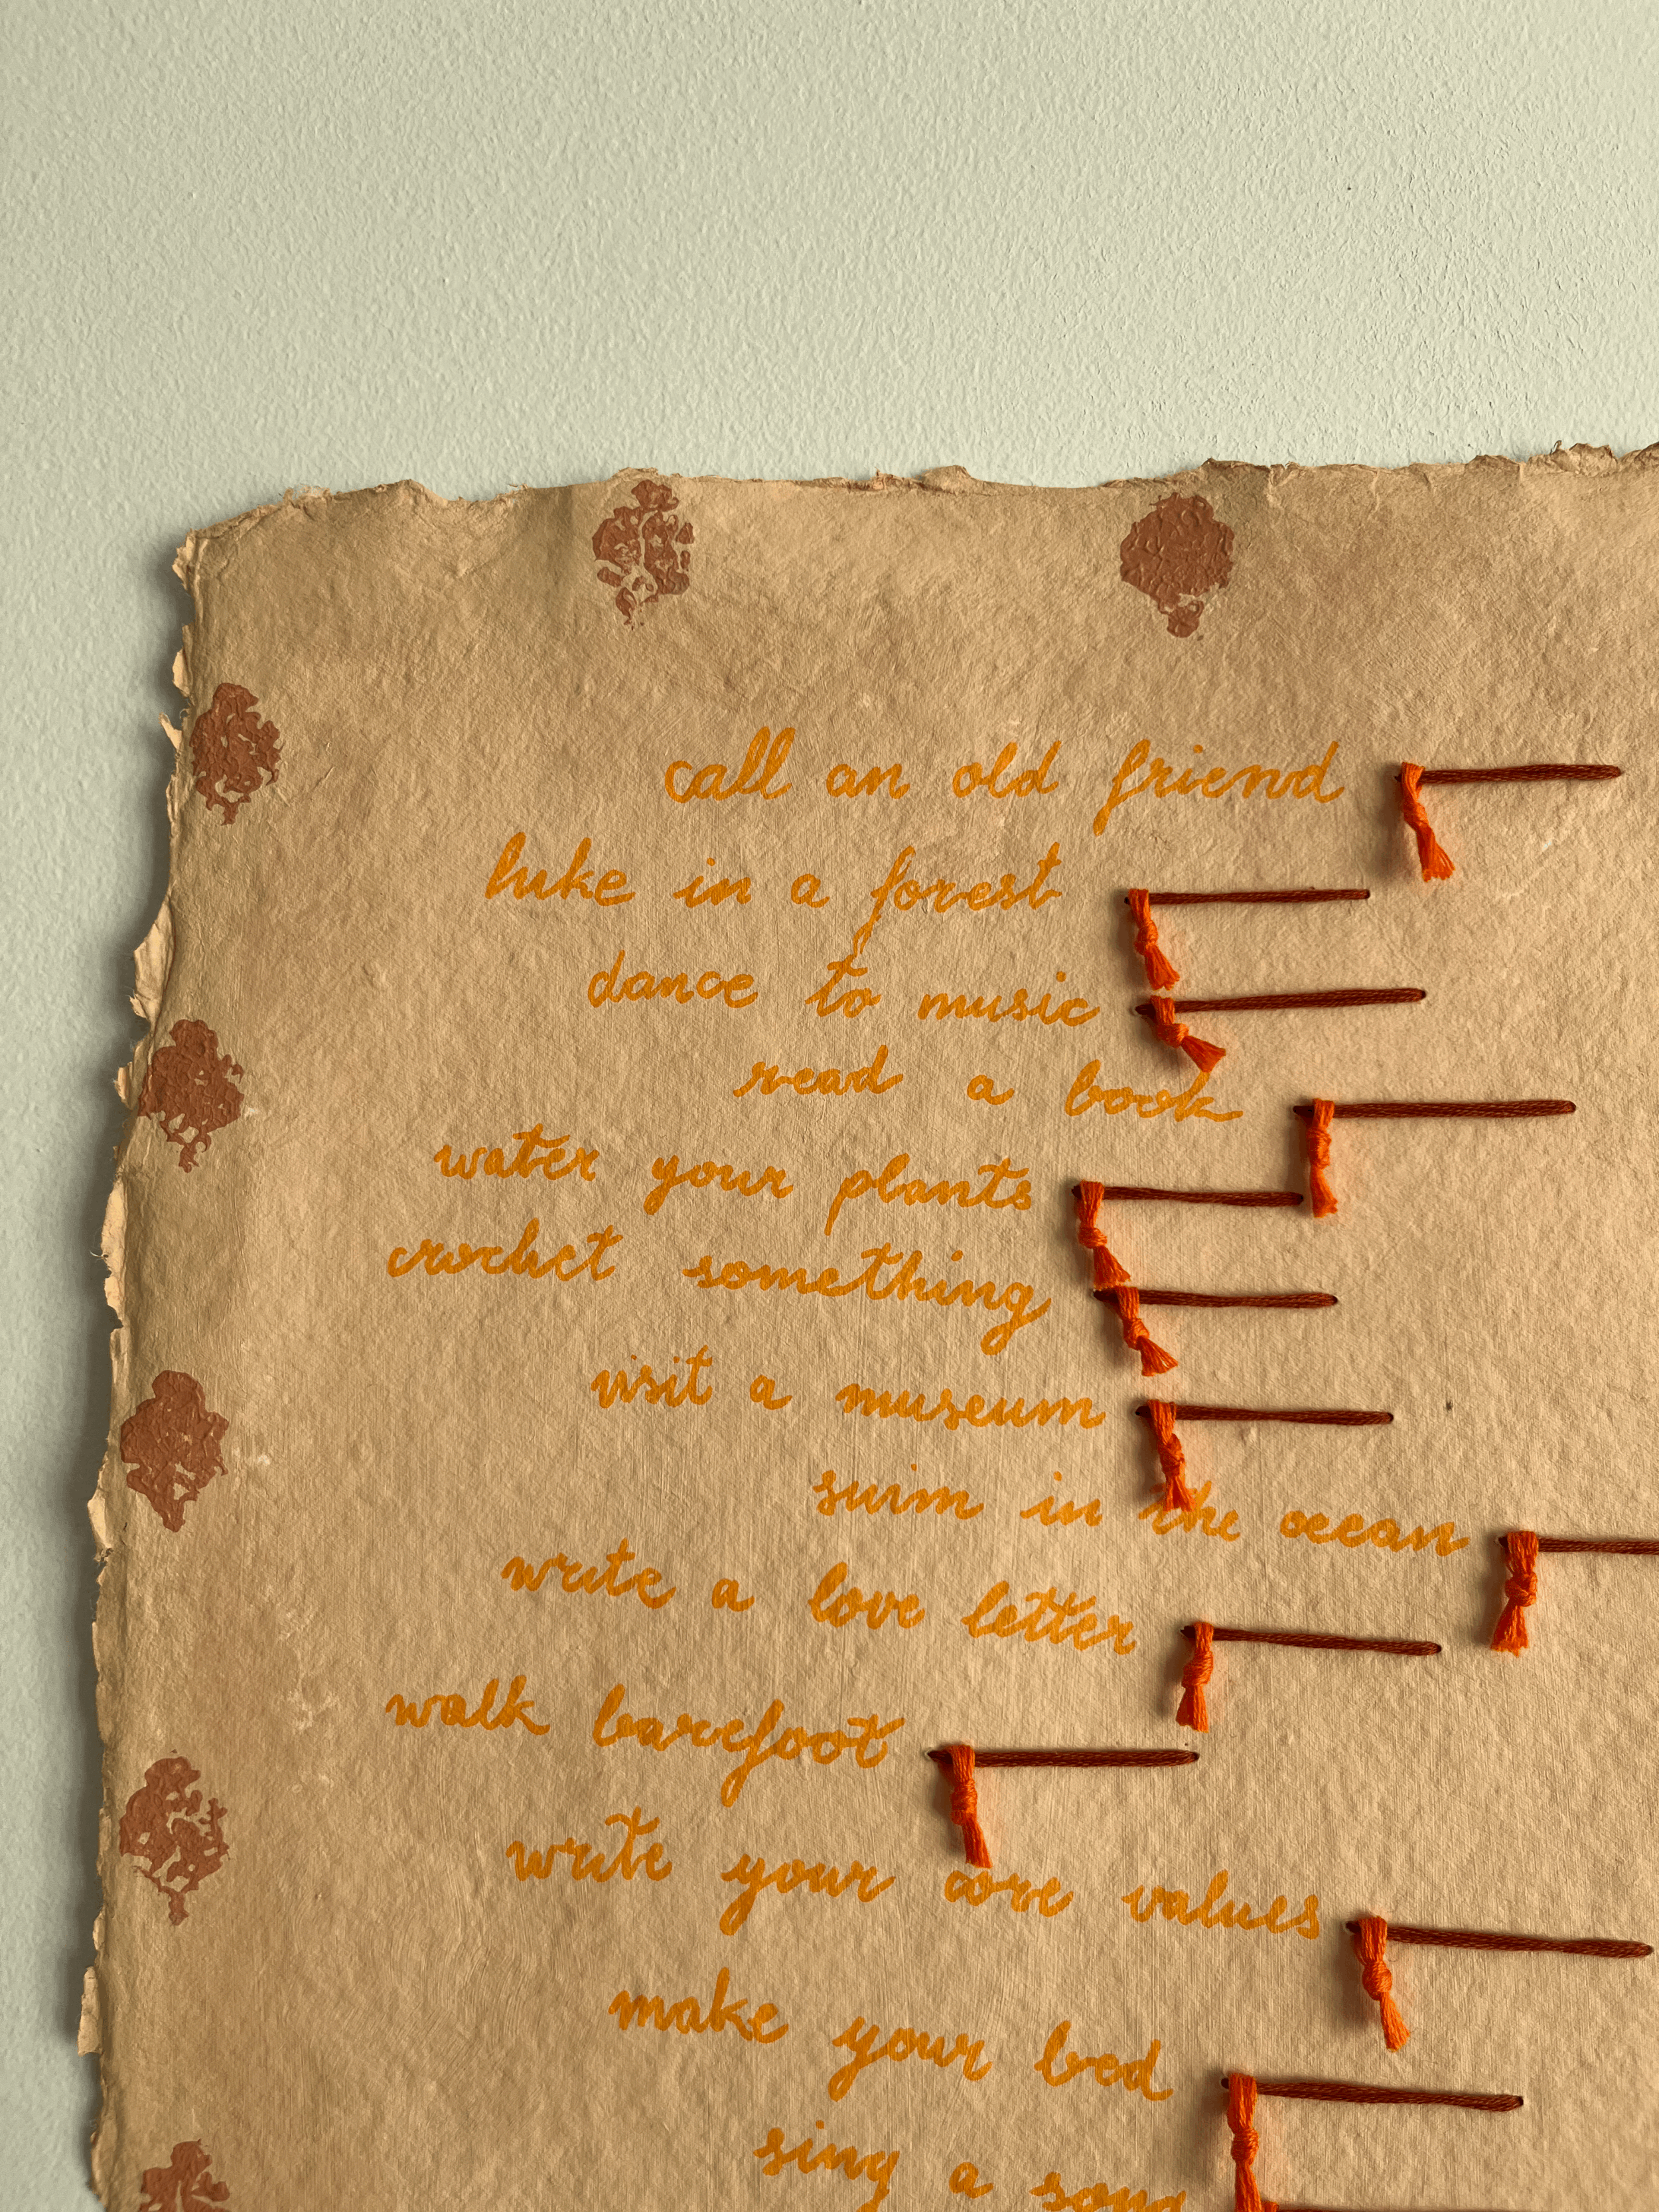 call an old friend
hike in a forest
dance to music
read a book
water your plants
crochet something
visit a museum
swim in the ocean
write a love letter
walk barefoot
write your core values
make your bed
sing a song